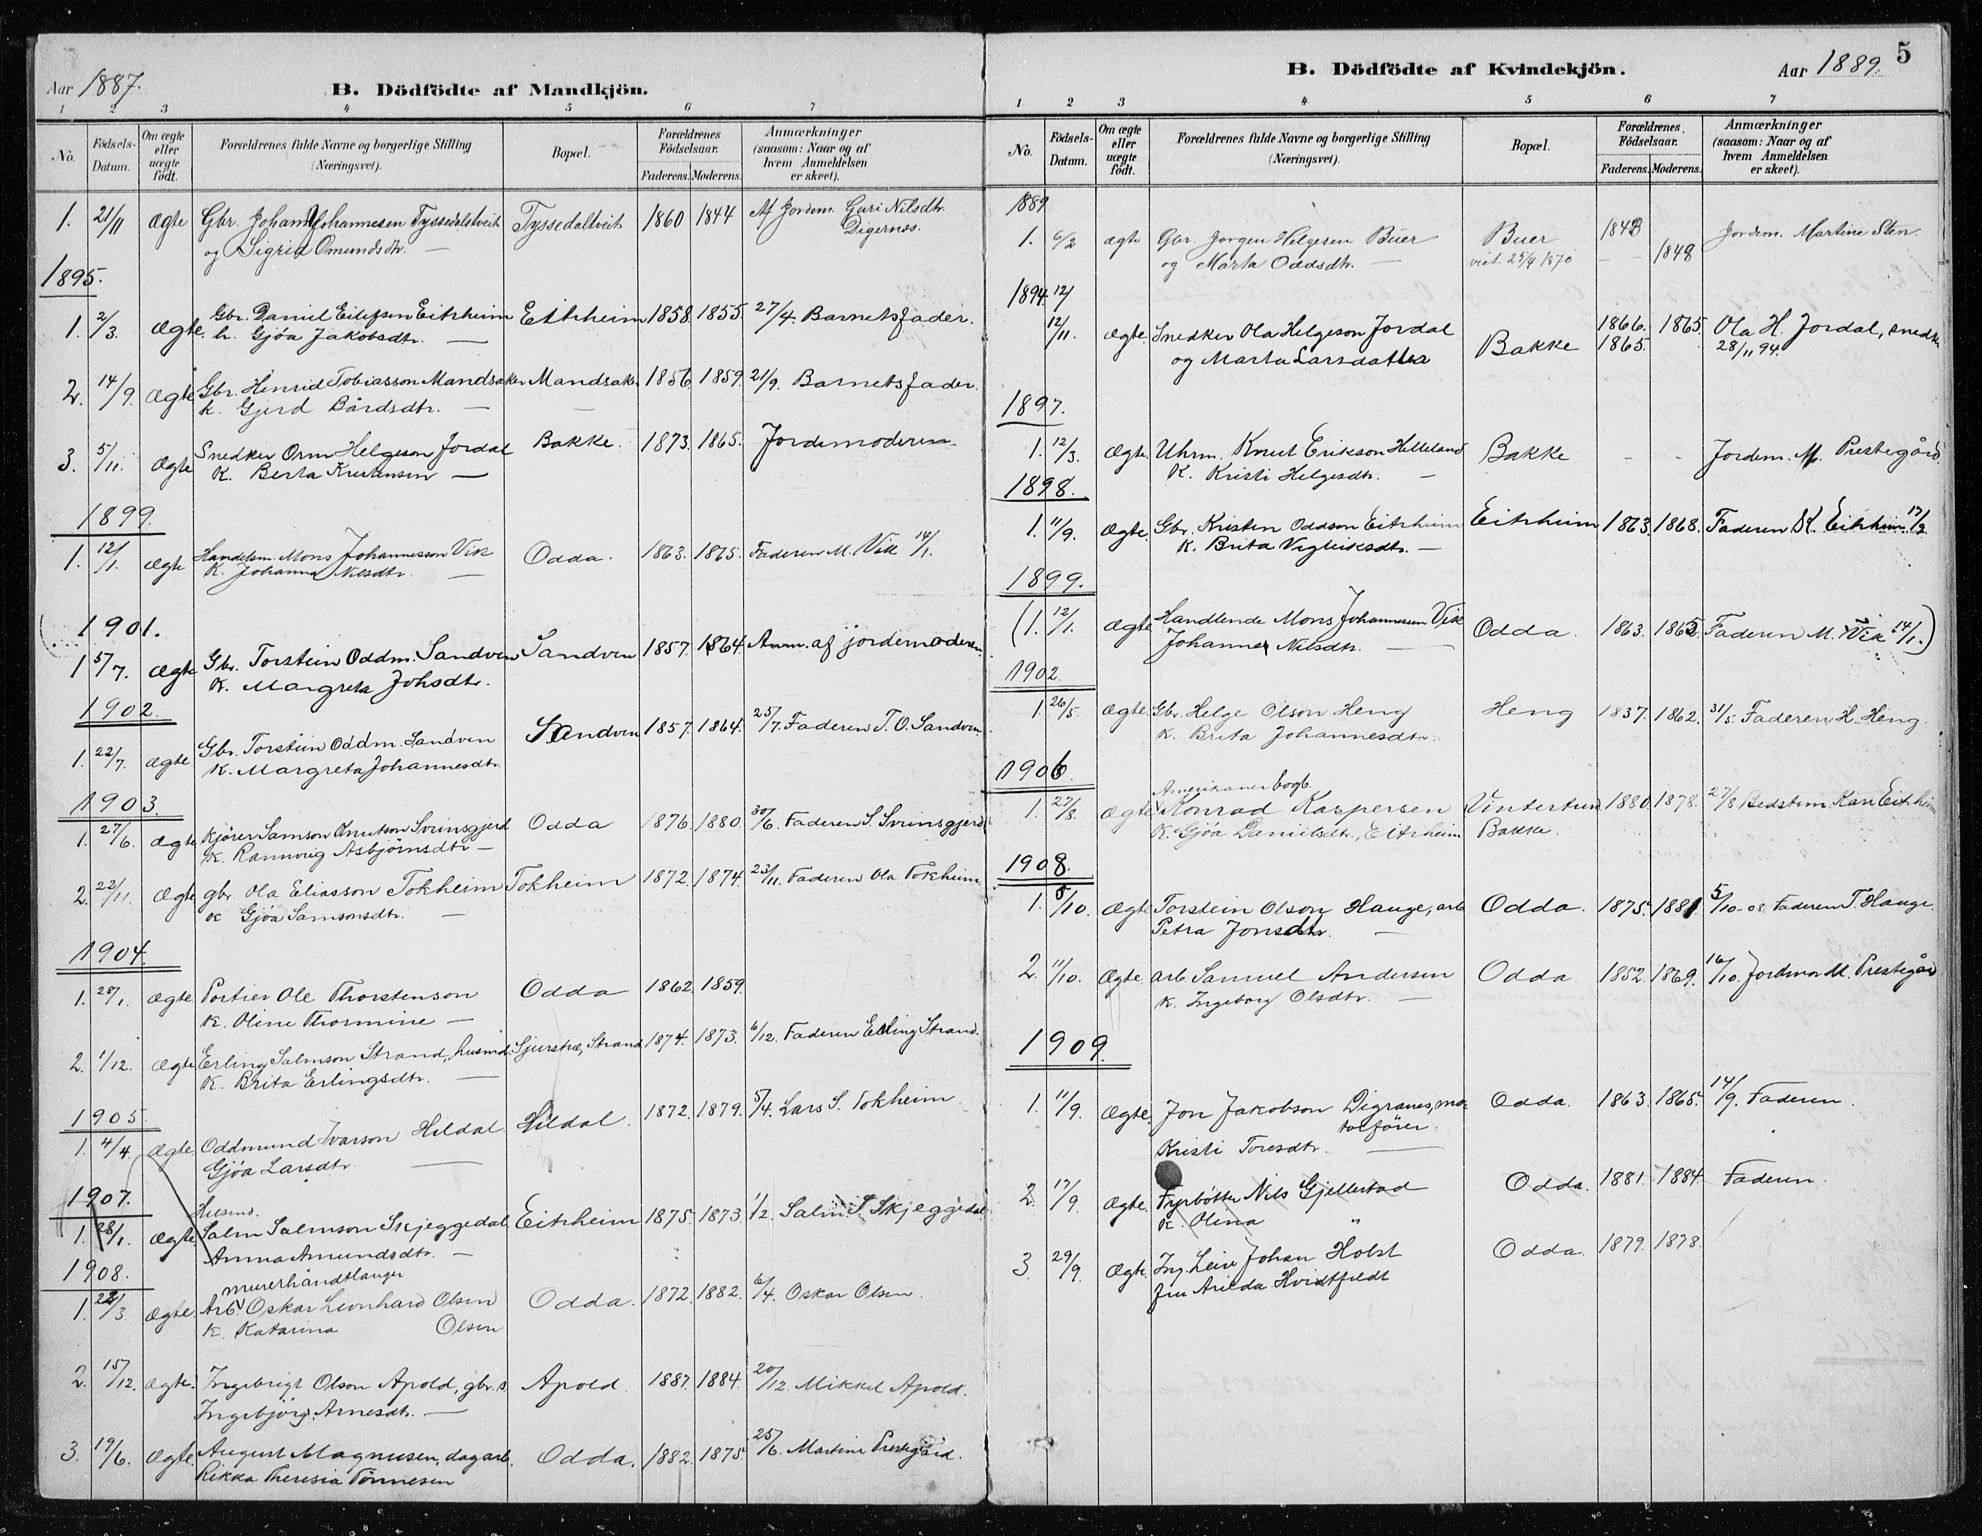 Aar 1887.
B. Dödfödte af Mandkjön.
1 2 3 4 5 6 7
No. Födsels-Datum. Om ægte eller uægte födt. Forældrenes fulde Navne og borgerlige Stilling (Næringsvei). Bopæl. Forældrenes Födselsaar. Faderens. Moderens. Anmærkninger (saasom: Naar og af hvem Anmeldelsen er skeet).
1. 21/11 ægte Gbr. Johans Johannesen Tyssedalstveit Tyssedaltveit 1860 1844 Af Jordem. Guri Nilsdtr.
og Sigrid Omundsdtr. — Digernes.
1895.
1. 2/3. Ægte. Gbr. Daniel Eilefsen Eitrheim Eitrheim 1858. 1855. 27/4. Barnets fader.
h. Gjøa Jakobsdtr. —
2. 14/9. Ægte Gbr. Henrid Tobiasson Mandsaker Mandsaker 1856. 1859. 21/9. Barnets fader.
k. Gjerd Bårdsdtr. — —
3. 5/11. Ægte Snedker Orm Helgeson Jordal Bakke. 1873. 1865. Jordemoderen
K. Berta Kristensen —
1899.
1. 12/1. Ægte Handelsm. Mons Johannesson Vik Odda. 1863. 1865. Faderen M. Vik 14/1.
K. Johanna Nilsdtr. —
1901.
1 5/7. Ægte Gbr. Torstein Oddm. Sandven Sandven 1857. 1864. Anm. af jordemoderen.
K. Margreta Johsdtr.
1902.
1. 22/7. Ægte Gbr. Torstein Oddm. Sandven Sandven 1857. 1864. 25/7. Faderen T. O. Sandven
K. Margreta Johannesdtr.
1903.
1. 27/6. Ægte Kjører Samson Knutson Svinsgjerd Odda 1876. 1880. 30/6. Faderen S. Svinsgjerd
K. Rannveig Asbjørnsdtr —
2. 22/11. Ægte gbr. Ola Eliasson Tokheim Tokheim 1872. 1874. 23/11. Faderen Ola Tokheim.
K Gjøa Samsonsdtr. —
1904.
1. 28/1. Ægte Portier Ole Thorstenson Odda 1862. 1859.
K. Oline Thormine —
2. 1/12. Ægte Erling Salmson Strand, husmd. Strand 1874. 1873. 6/12. Faderen Erling Strand.
K. Brita Erlingsdtr. —
1905
1. 4/4. Ægte Oddmund Ivarson Hildal Hildal. 1872. 1879. 5/4. Lars S. Tokheim
Gjøa Larsdtr. —
1907.
Husmd.
1. 28/1. Ægte. Salm Salmson Skjeggedal Eitrheim 1875. 1873. 1/2. Salm S. Skjeggedal
Anna Amundsdtr. —
1908. murerhåndtlanger
1. 22/3. Ægte. Arb. Oskar Leonhard Olsen Odda. 1872. 1882. 6/4. Oskar Olsen.
K. Katarina Olsen
2. 15/12. Ægte. Ingebrigt Olson Apold, gbr. s Apold. 1887. 1884. 20/12. Mikkel Apold.
Ingebjörg Arnesdtr. —
3. 19/6. Ægte. August Magnusen, dagarb. Odda. 1882. 1875. 25/6. Martine Prestegård.
Rikka Theresia Tønnesen
5
B. Dödfödte af Kvindekjön. Aar 1889.
1 2 3 4 5 6 7
No. Födsels-Datum. Om ægte eller uægte födt. Forældrenes fulde Navne og borgerlige Stilling (Næringsvei). Bopæl. Forældrenes Födselsaar. Faderens. Moderens. Anmærkninger (saasom: Naar og af hvem Anmeldelsen er skeet).
1889
1. 6/2 ægte Gbr. Jørgen Helgesen Buer Buer 1843 Jordem. Martine Sten.
og Marta Oddsdtr. — viet 25/4 1870 — — 1848
1894. 12/
12/11. Ægte. Snedker Ola Helgeson Jordal Bakke 1866. 1865. 1865. Ola H. Jordal, snedk
og Marta Larsdatter 28/11 94.
1897.
1. 12/3. Ægte. Uhrm. Knut Erikson Helleland Bakke - - Jordem. M. Prestegård.
K. Kristi Helgesdtr. —
1898.
1. 11/9. Ægte. Gbr. Kristen Oddson Eitrheim Eitrheim 1863. 1868. Faderen K. Eitrheim.
K. Brita Vigleiksdtr. —
1899.
(1. 12/1. Ægte Handlende Mons Johannesen Vik Odda. 1863. 1865. Faderen M. Vik 14/1.)
Johanne Nilsdtr. —
1902.
1. 26/5. Ægte. Gbr. Helge Olson Heng Heng 1837. 1862. 31/5. Faderen H. Heng.
K. Brita Johannesdtr.
1906.
Amerikaner bogb.
1. 27/8. Ægte Konrad Kaspersen Vintertun 1880. 1878. 27/8 Bedstem. Kari Eitrheim
K. Gjøa Danielsdtr., Eitrheim Bakke.
1908.
1. 5/10. Ægte Torstein Olson Hauge, arb Odda. 1875. 1881. 5/10-08. Faderen T. Hauge
Petra Jonsdtr. —
2. 11/10. Ægte. arb Samuel Andersen Odda 1852. 1869. 16/10. Jordmor M. Prestegård
K. Ingeborg Olsdtr. —
1909.
1. 11/9. Ægte. Jon Jakobson Digranes, mo- Odda. 1863. 1865. 14/9. Faderen.
torfører.
Kristi Toresdtr. —
2. 17/9. Ægte. Fyrbøtter Nils Gjellestad Odda. 1881. 1884. Faderen.
K. Olina "
3. 29/9. Ægte. Ing. Leiv Johan Holst Odda. 1879. 1878.
fru Arilda Hvidtfeldt